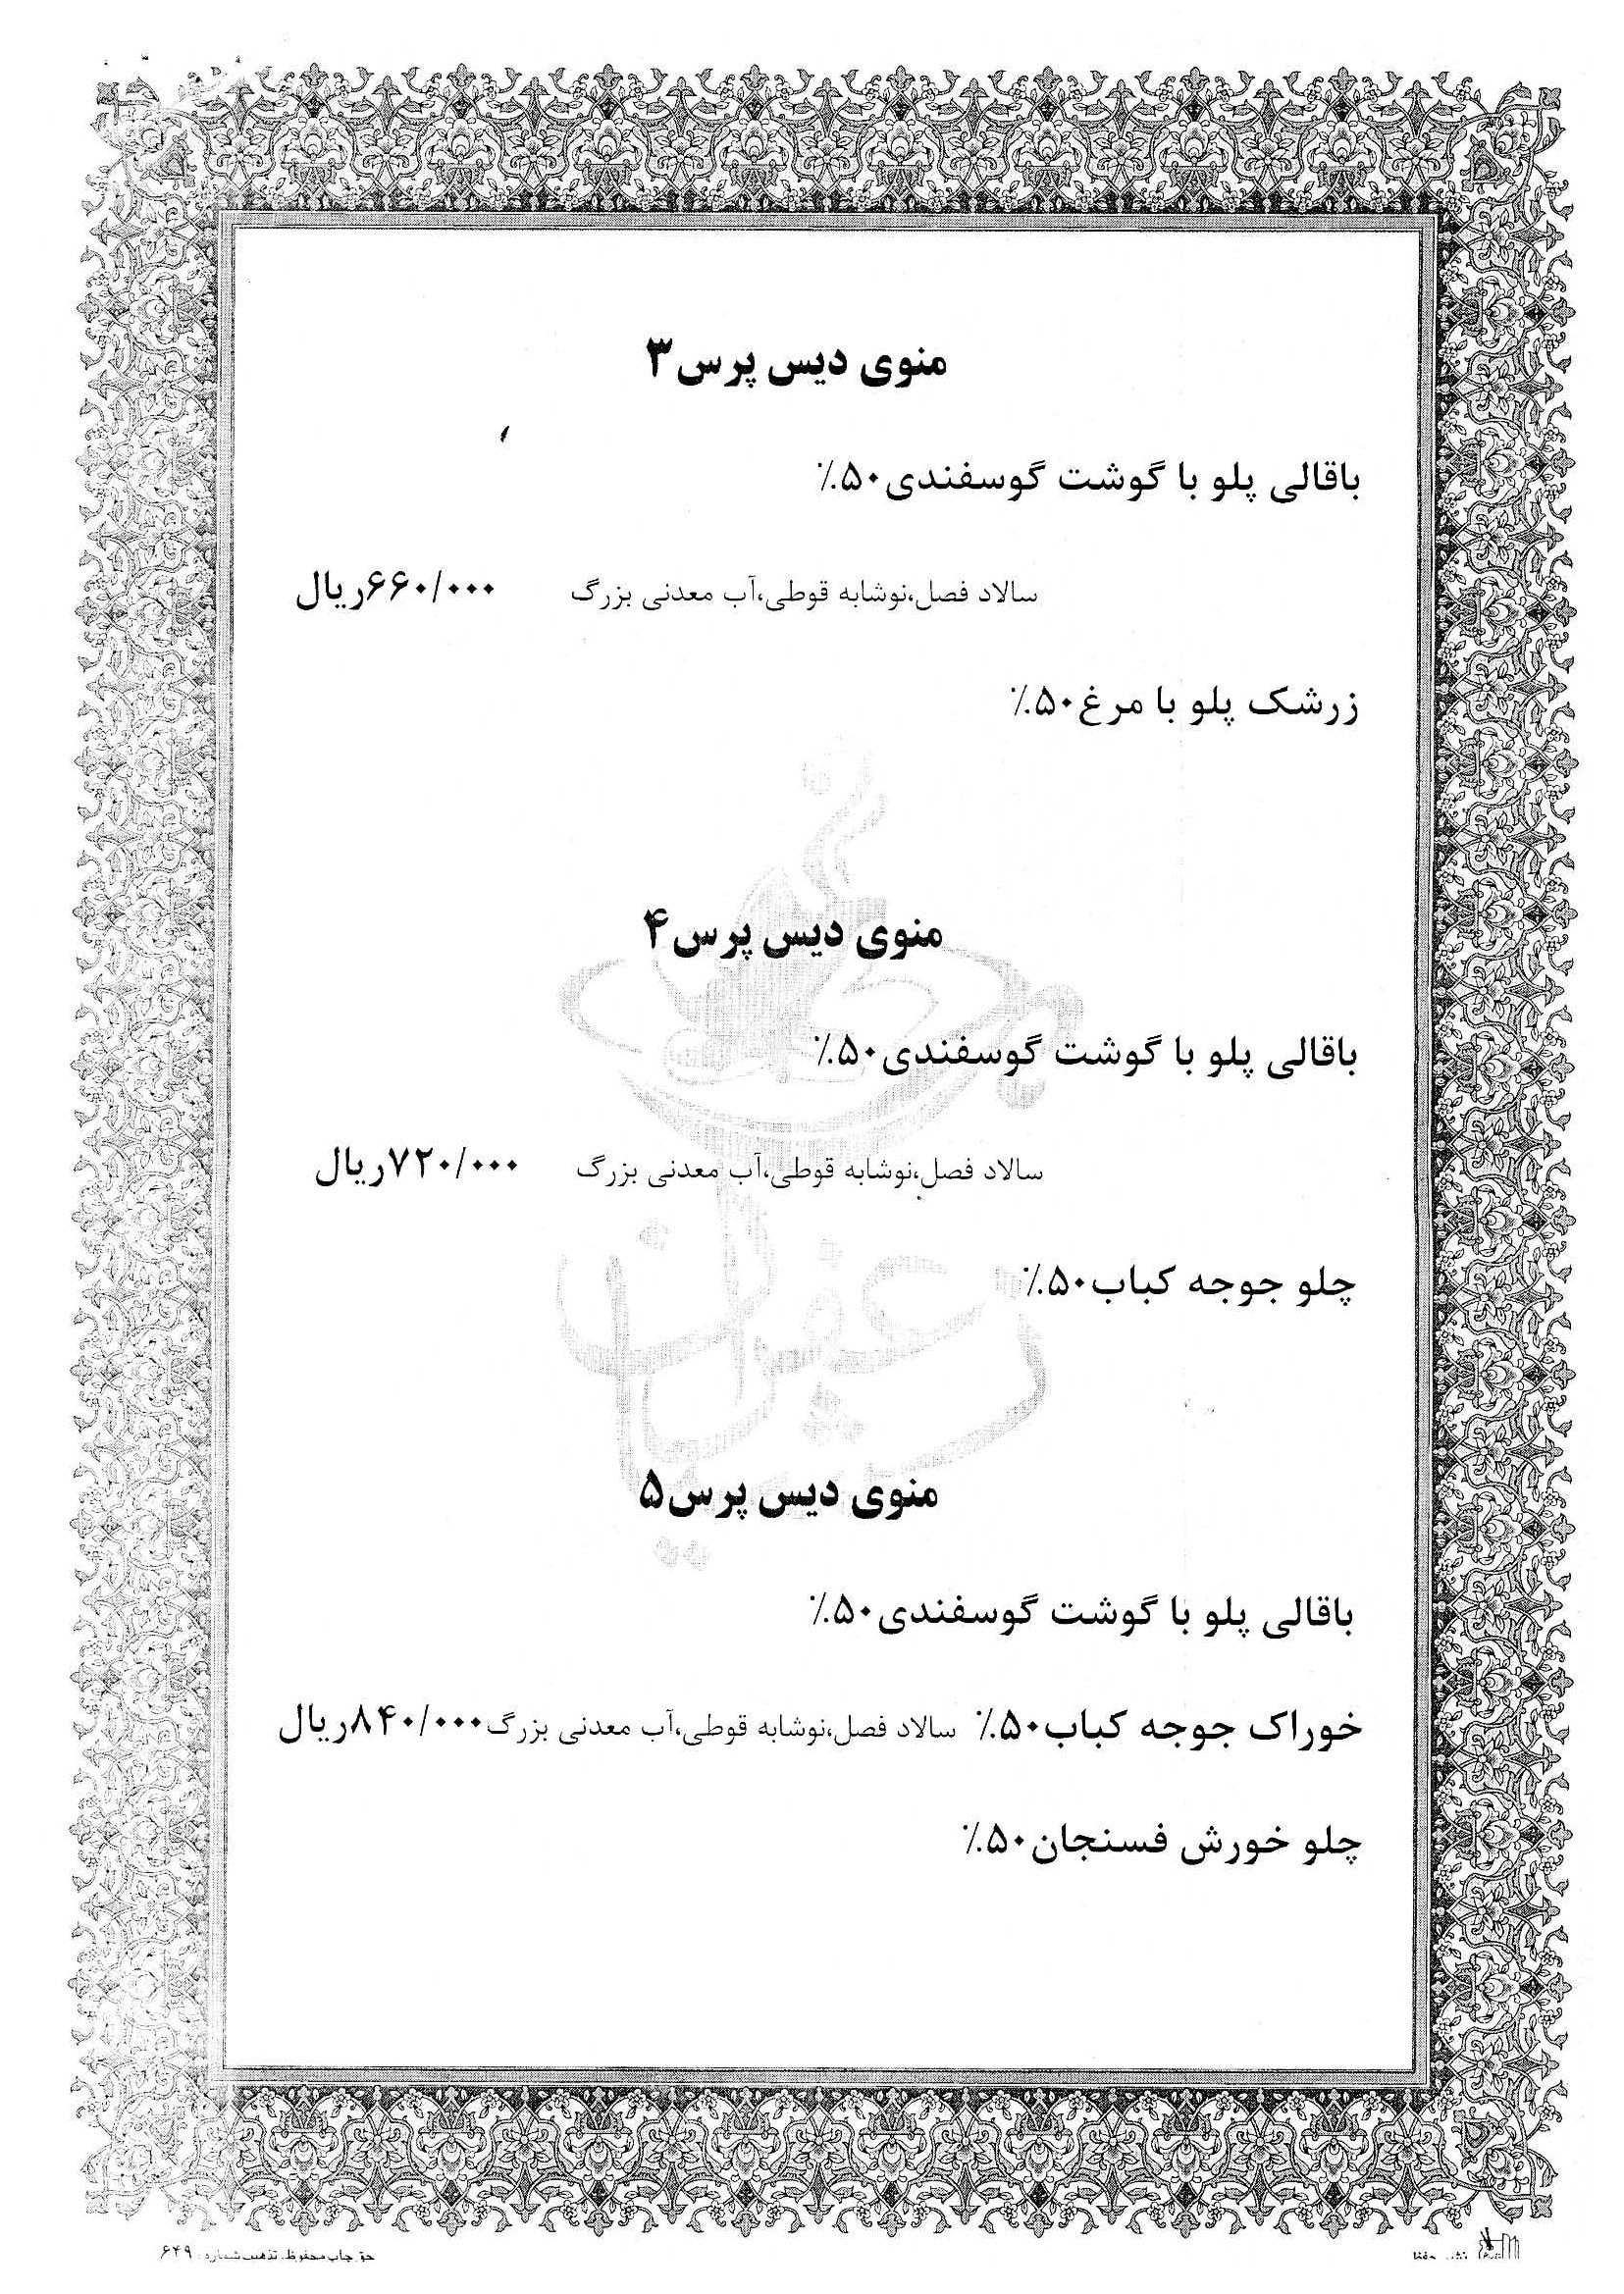 منوی دیس پرس۳
باقالی پلو با گوشت گوسفندی۵۰٪
سالاد فصل،نوشابه قوطی،آب معدنی بزرگ ۶۶۰/۰۰۰ریال
زرشک پلو با مرغ۵۰٪
منوی دیس پرس۴
باقالی پلو با گوشت گوسفندی۵۰٪
سالاد فصل،نوشابه قوطی،آب معدنی بزرگ ۷۲۰/۰۰۰ریال
چلو جوجه کباب۵۰٪
منوی دیس پرس۵
باقالی پلو با گوشت گوسفندی۵۰٪
خوراک جوجه کباب۵۰٪ سالاد فصل،نوشابه قوطی،آب معدنی بزرگ۸۴۰/۰۰۰ریال
چلو خورش فسنجان۵۰٪
حق چاپ محفوظ. تذهیب شماره: ۶۴۹